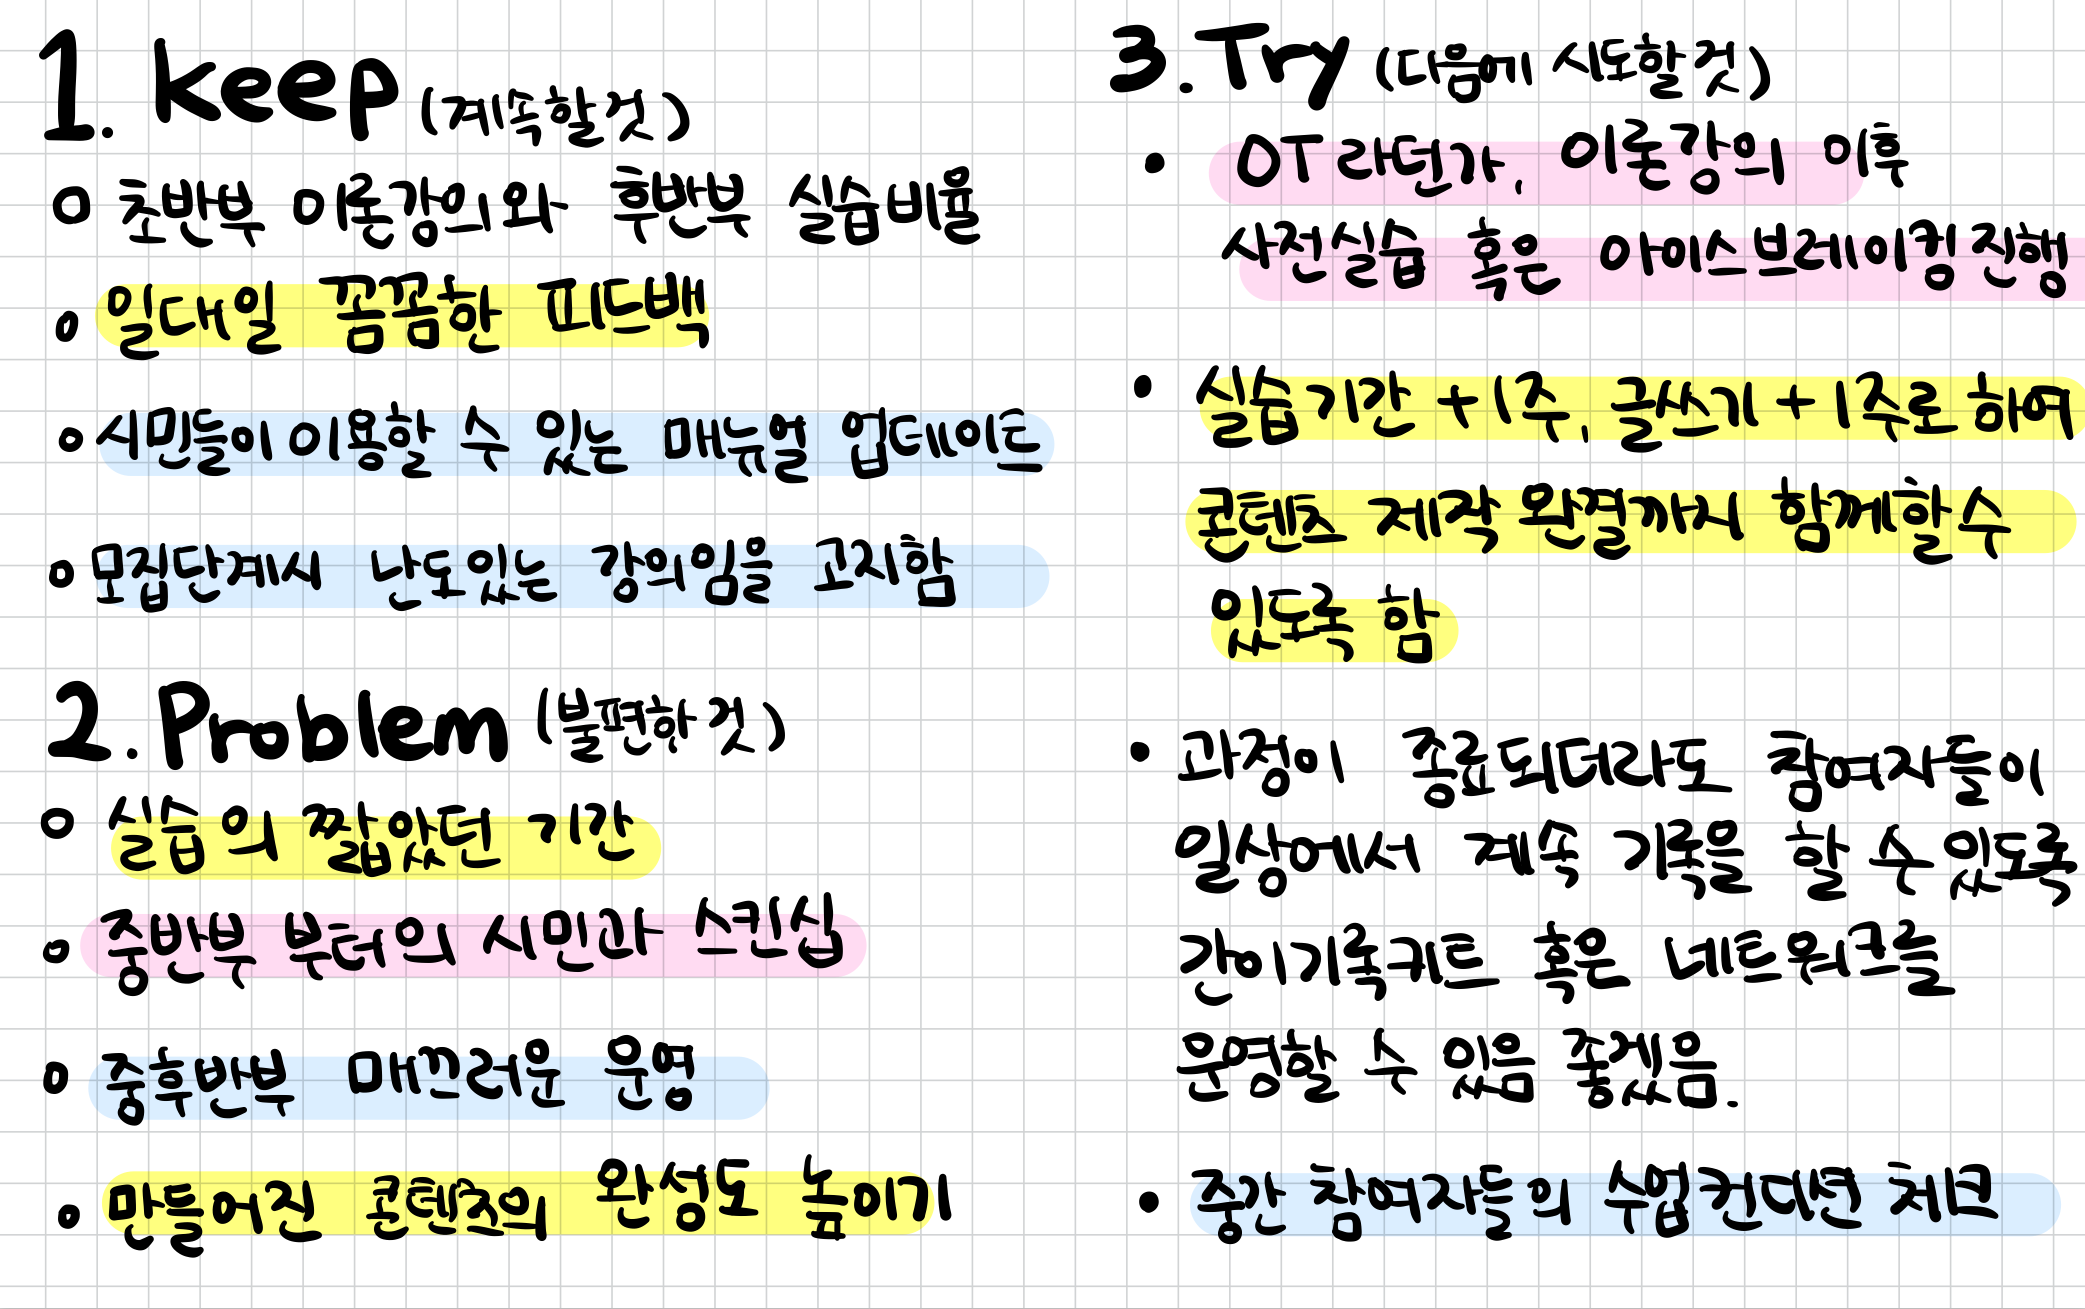 1. Keep (계속할것)
o 초반부 이론강의와 후반부 실습비율
o 일대일 꼼꼼한 피드백
o 시민들이 이용할 수 있는 매뉴얼 업데이트
o 모집단계시 난도있는 강의임을 고지함
2. Problem (불편한것)
o 실습의 짧았던 기간
o 중반부 부터의 시민과 스킨십
o 중후반부 매끄러운 운영
o 만들어진 콘텐츠의 완성도 높이기
3. Try (다음에 시도할것)
• OT라던가, 이론강의 이후
사전실습 혹은 아이스브레이킹 진행
• 실습기간 +1주, 글쓰기 +1주로 하여
콘텐츠 제작 완결까지 함께할 수
있도록 함
• 과정이 종료되더라도 참여자들이
일상에서 계속 기록을 할 수 있도록
간이기록키트 혹은 네트워크를
운영할 수 있음 좋겠음.
• 중간 참여자들의 수업컨디션 체크